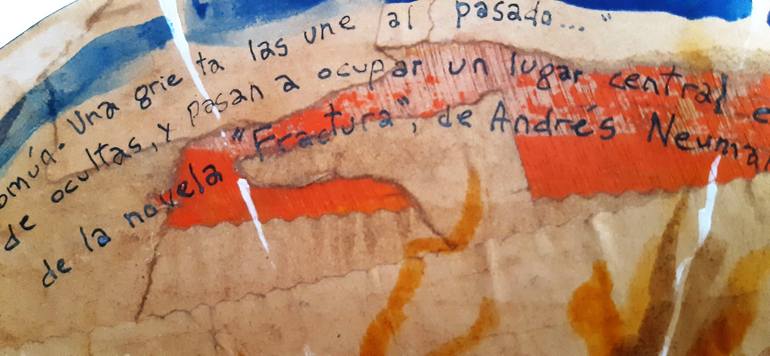 omún. Una grieta las une al pasado..."
de ocultas, y pasan a ocupar un lugar central e
de la novela "Fractura", de Andrés Neuma